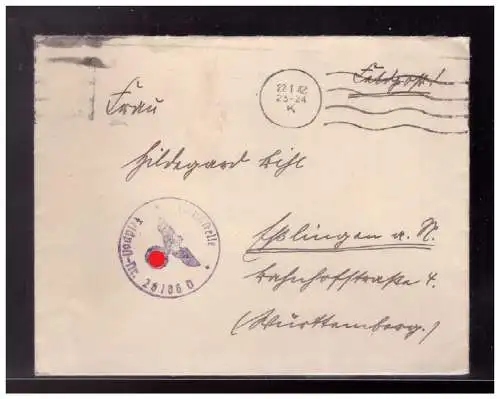 Feldpost!
22.1.42
23-24
K
Frau
Hildegard Bihl
Eßlingen a. N.
Bahnhofstraße 4.
(Württemberg.)
28186 D